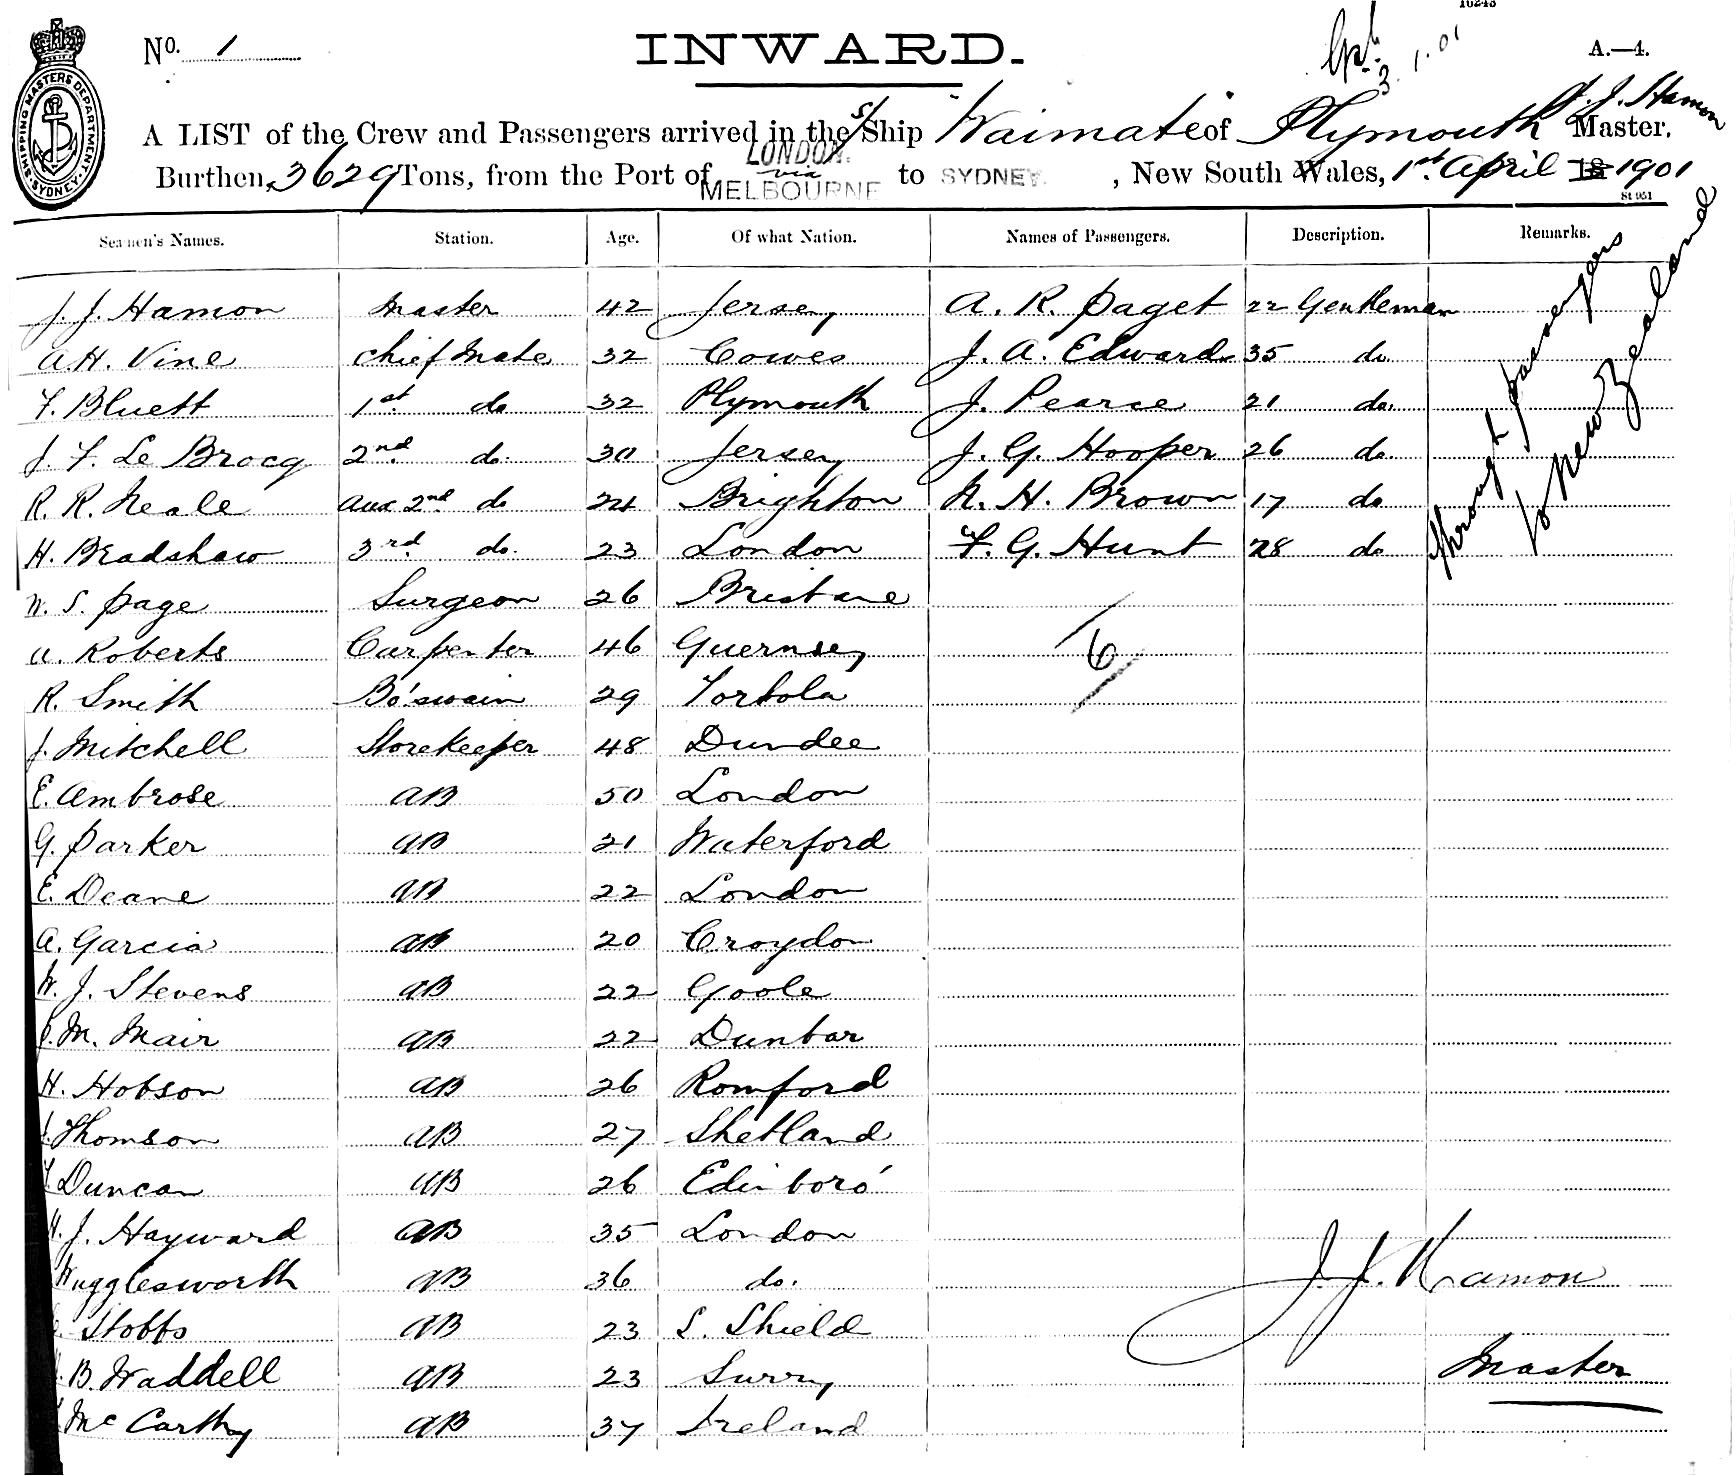 16243
No. 1
INWARD.
3.1.01
A.—4.
SHIPPING MASTERS DEPARTMENT. SYDNEY.
A LIST of the Crew and Passengers arrived in the S/Ship Waimate of Plymouth J. J. Hamon Master.
Burthen, 3629 Tons, from the Port of LONDON. via MELBOURNE to SYDNEY. , New South Wales, 1st April 18 1901
St 951
Seamen's Names. Station. Age. Of what Nation. Names of Passengers. Description. Remarks.
J. J. Hamon Master 42 Jersey A. R. Paget 22 Gentleman
A.H. Vine Chief Mate 32 Cowes J. A. Edwards 35 do
F. Bluett 1st do 32 Plymouth J. Pearce 21 do.
J. F. Le Brocq 2nd do. 30 Jersey J. G. Hooper 26 do
R. R. Neale Aux 2nd do 24 Brighton N. H. Brown 17 do
H. Bradshaw 3rd do. 23 London F. G. Hunt 28 do
through passengers
to New Zealand
W. S. Page Surgeon 26 Brisbane
A. Roberts Carpenter 46 Guernsey 6
R. Smith Bo'swain 29 Tortola
J. Mitchell Storekeeper 48 Dundee
E. Ambrose AB 50 London
G. Parker AB 21 Waterford
E. Deane AB 22 London
A. Garcia AB 20 Croydon
W. J. Stevens AB 22 Goole
J. M. Mair AB 22 Dunbar
H. Hobson AB 26 Romford
J. Thomson AB 27 Shetland
Duncan AB 26 Edinboro'
H. J. Hayward AB 35 London
Wugglesworth AB 36 do.
Stobbs AB 23 S. Shield
B. Waddell AB 23 Surry
McCarthy AB 37 Ireland
J. J. Hamon
Master